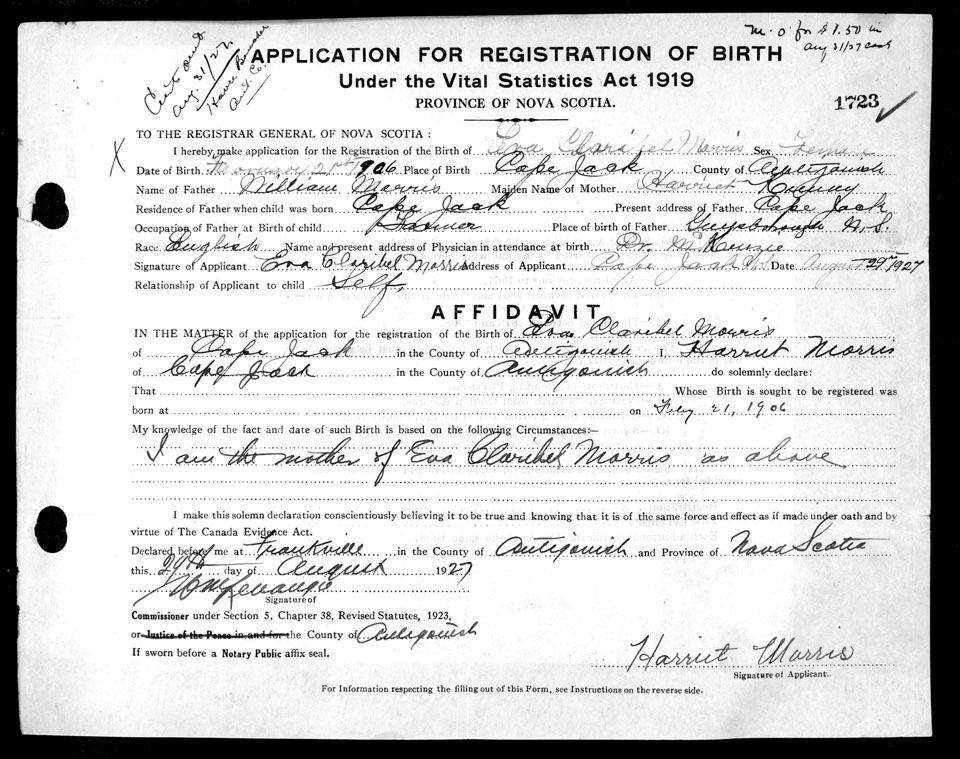 M.O for $1.50 in
Aug 31/27 cash
Cert and
Aug. 31/27.
Havre Boucher
Ant. Co.
APPLICATION FOR REGISTRATION OF BIRTH
Under the Vital Statistics Act 1919
PROVINCE OF NOVA SCOTIA.
1723
X
TO THE REGISTRAR GENERAL OF NOVA SCOTIA:
I hereby make application for the Registration of the Birth of Eva Claribel Morris Sex Female
Date of Birth February 21st 1906 Place of Birth Cape Jack County of Antigonish
Name of Father William Morris Maiden Name of Mother Harriet
Residence of Father when child was born Cape Jack Present address of Father Cape Jack
Occupation of Father at Birth of child Farmer Place of birth of Father Guysborough N.S.
Race English Name and present address of Physician in attendance at birth Dr. McKenzie
Signature of Applicant Eva Claribel Morris Address of Applicant Cape Jack N.S Date August 29th 1927
Relationship of Applicant to child Self.
AFFIDAVIT
IN THE MATTER of the application for the registration of the Birth of Eva Claribel Morris
of Cape Jack in the County of Antigonish I, Harriet Morris
of Cape Jack in the County of Antigonish do solemnly declare:
That Whose Birth is sought to be registered was
born at on Feby 21, 1906
My knowledge of the fact and date of such Birth is based on the following Circumstances:—
I am the mother of Eva Claribel Morris as above
I make this solemn declaration conscientiously believing it to be true and knowing that it is of the same force and effect as if made under oath and by
virtue of The Canada Evidence Act.
Declared before me at Frankville in the County of Antigonish and Province of Nova Scotia
this 29th day of August 1927
Signature of
Commissioner under Section 5, Chapter 38, Revised Statutes, 1923,
or Justice of the Peace in and for the County of Antigonish
If sworn before a Notary Public affix seal.
Harriet Morris
Signature of Applicant.
For Information respecting the filling out of this Form, see Instructions on the reverse side.